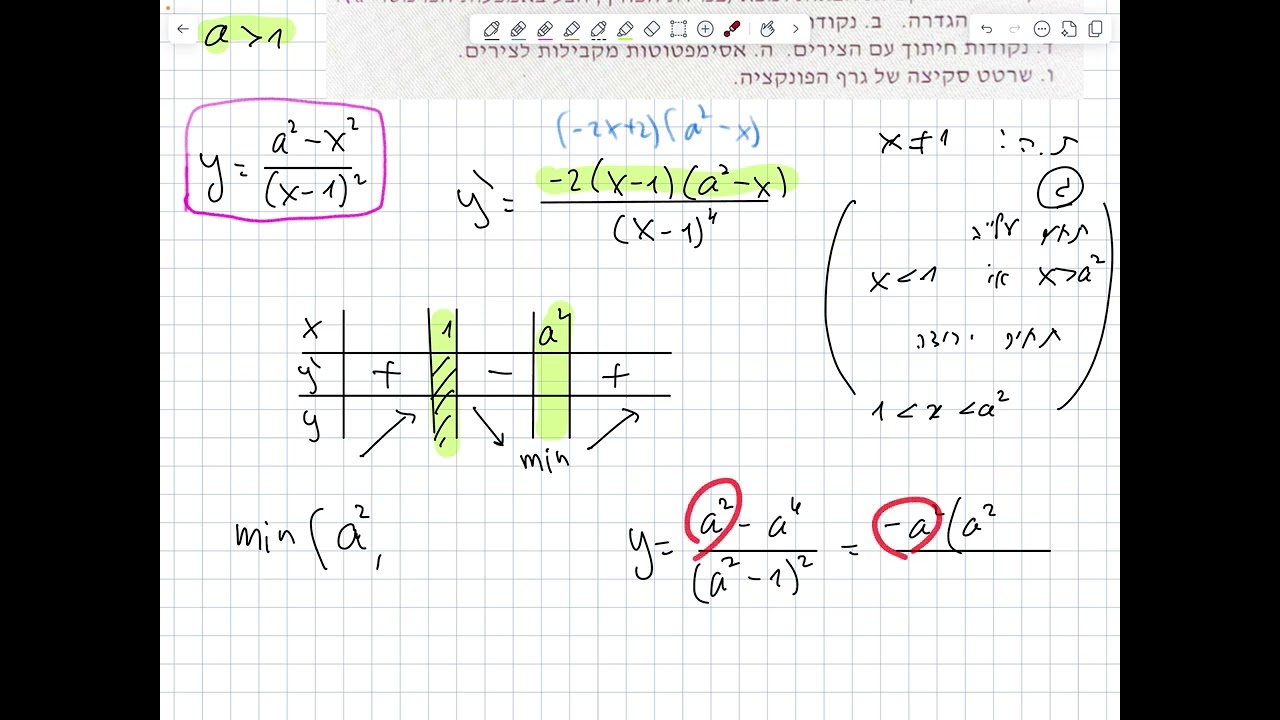 a > 1
הגדרה. ב. נקודו
ד. נקודות חיתוך עם הצירים. ה. אסימפטוטות מקבילות לצירים.
ו. שרטט סקיצה של גרף הפונקציה.
y = (a² - x²) / (x-1)²
(-2x+2)(a² - x)
y` = -2(x-1)(a²-x) / (x-1)⁴
ת.ה: x ≠ 1
x < 1 או x > a²
1 < x < a²
x 1 a²
y` + - +
y ↗ ↘ ↗
min
min (a²,
y = (a² - a⁴) / (a² - 1)² = -a²(a²